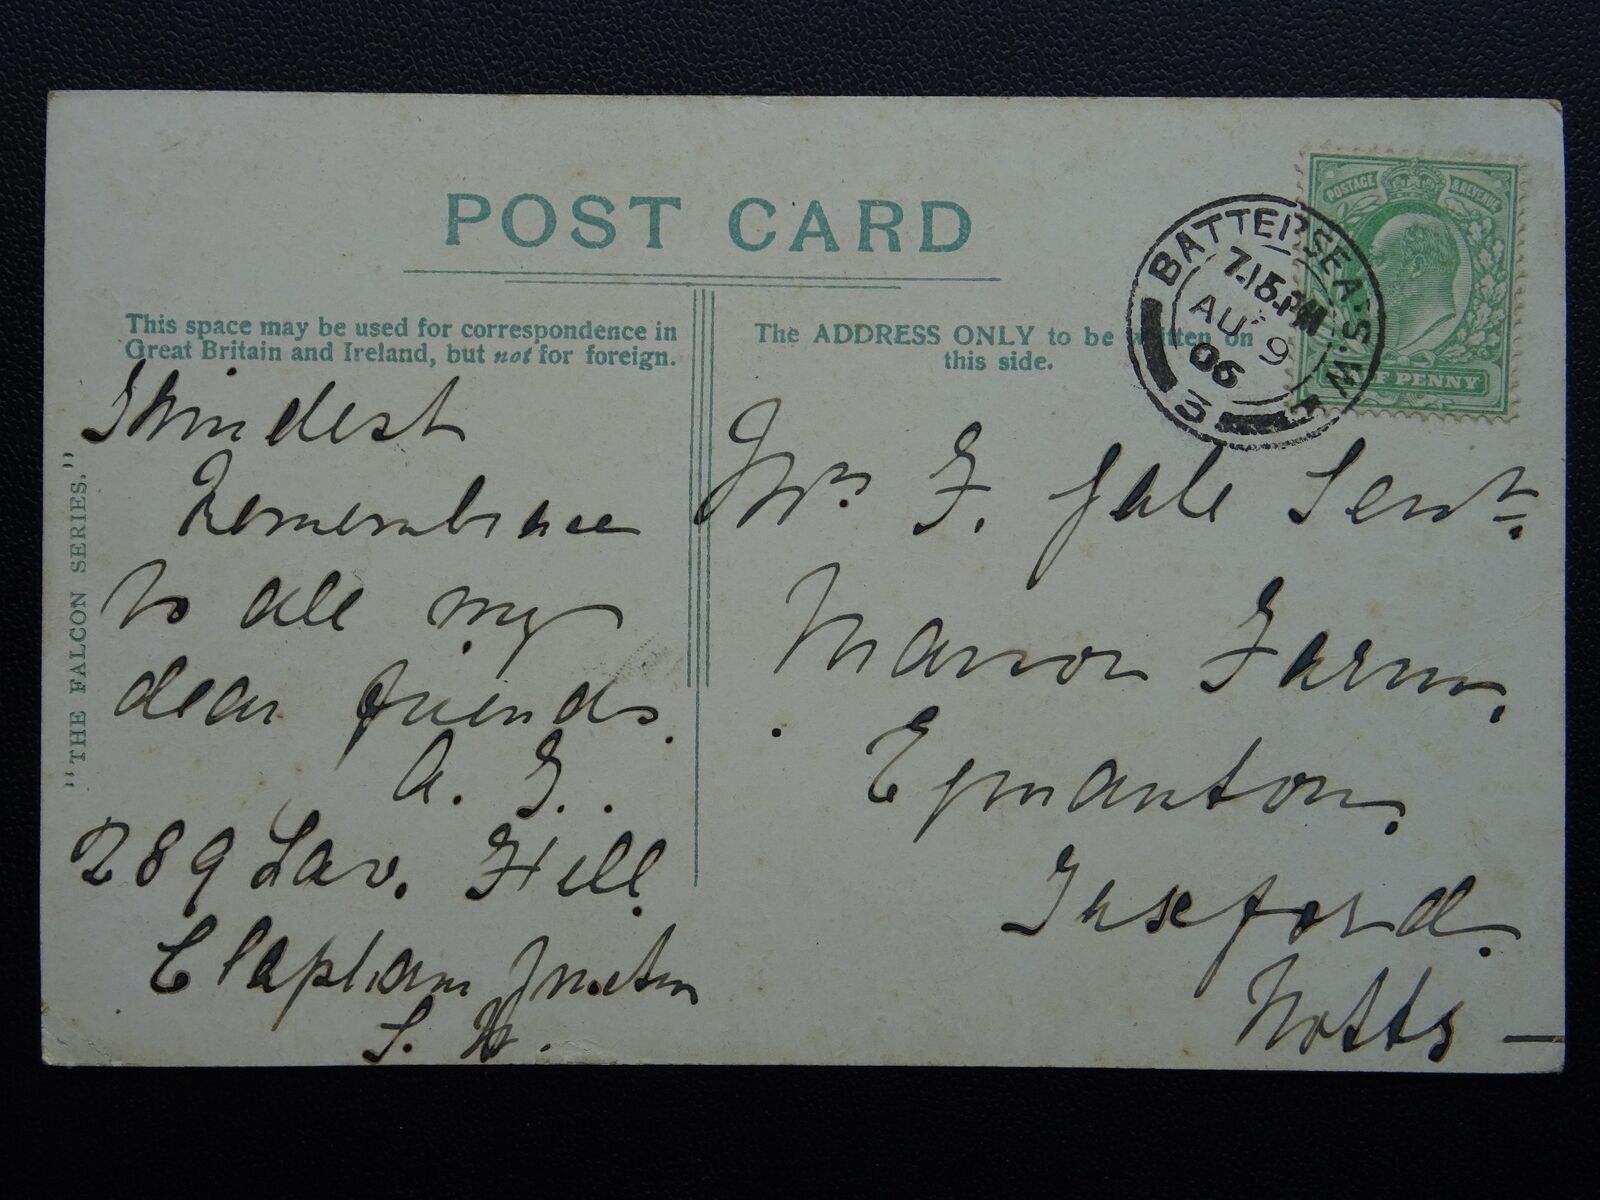 POST CARD
This space may be used for correspondence in
Great Britain and Ireland, but not for foreign.
The ADDRESS ONLY to be written on
this side.
BATTERSEA. S.W.
7.15.PM
AU 9
06
3
POSTAGE & REVENUE
HALF PENNY
"THE FALCON SERIES."
Kindest
Remembrance
to all my
dear friends.
A. G..
289 Lav. Hill.
Clapham Junctn
S. W.
Mrs. F. Gale Senr.
Manor Farm,
Egmanton.
Tuxford.
Notts —